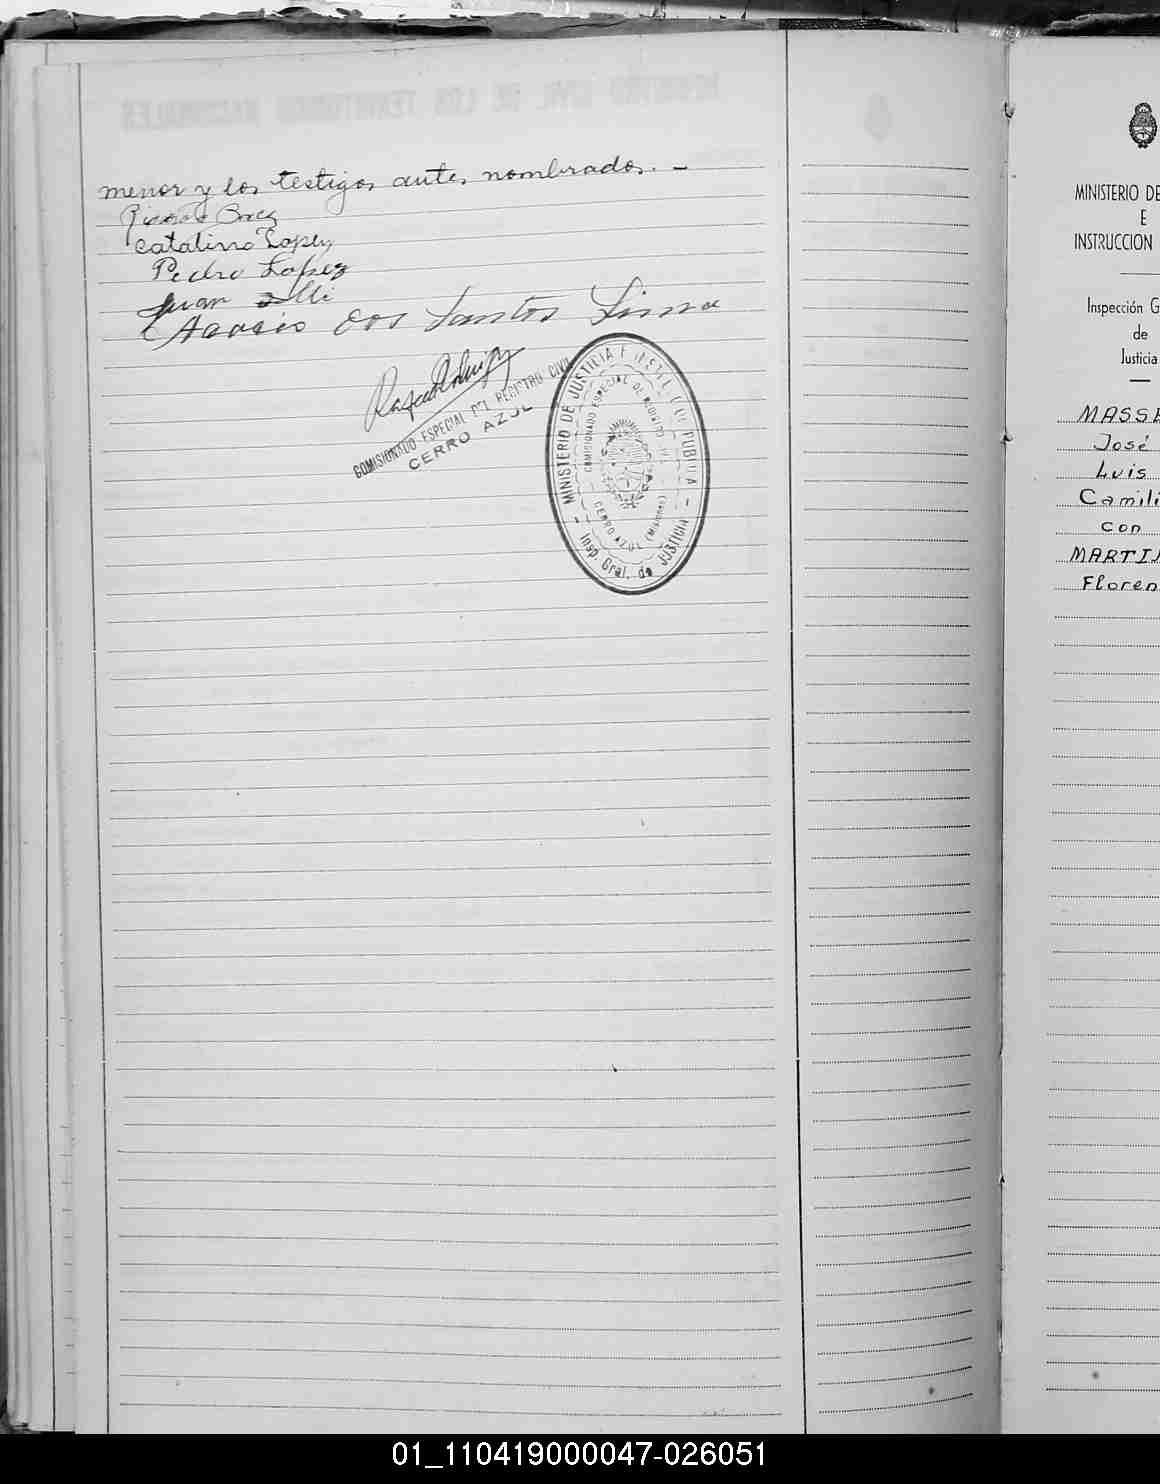 menor y los testigos antes nombrados. —
Ricardo Baez
Catalino Lopez
Pedro Lopez
Juan
Acasio dos Santos Lima
COMISIONADO ESPECIAL DEL REGISTRO CIVIL
CERRO AZUL
MINISTERIO DE JUSTICIA E INSTRUCCION PUBLICA
COMISIONADO ESPECIAL DE REGISTRO
CERRO AZUL (Misiones)
Insp. Gral. de JUSTICIA
MINISTERIO DE
E
INSTRUCCION
Inspección G
de
Justicia
MASS
José
Luis
Camili
con
MARTI
Floren
01_110419000047-026051